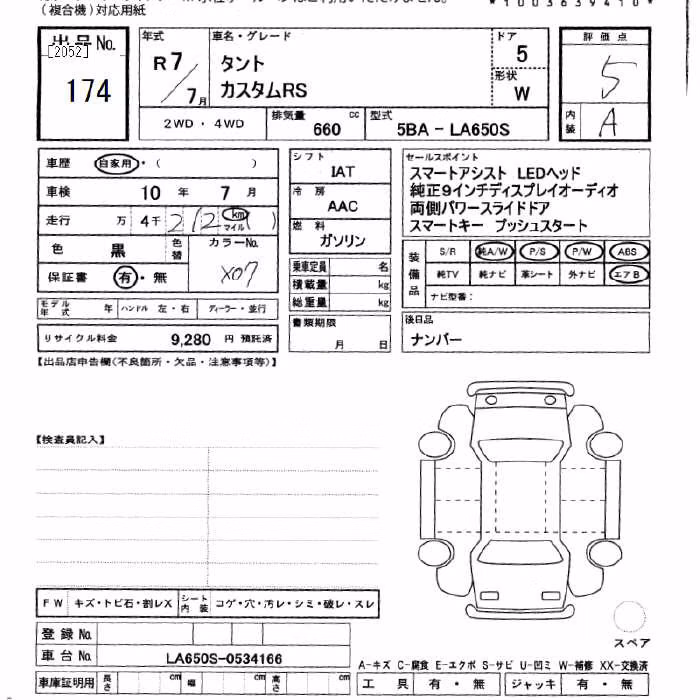 (複合機)対応用紙
*1003639410*
出品No.
[2052]
174
年式
R7/7月
車名・グレード
タント
カスタムRS
ドア
5
形状
W
評価点
5
内装
A
2WD・4WD
排気量
660 cc
型式
5BA-LA650S
車歴 自家用・( )
車検 10年 7月
走行 万 4千 212 km マイル ( )
色 黒 色替
カラーNo.
X07
保証書 有・無
モデル年式 年 ハンドル 左・右 ディーラー・並行
リサイクル料金 9,280 円 預託済
シフト
IAT
冷房
AAC
燃料
ガソリン
乗車定員 名
積載量 kg
総重量 kg
書類期限
月 日
セールスポイント
スマートアシスト LEDヘッド
純正9インチディスプレイオーディオ
両側パワースライドドア
スマートキー プッシュスタート
装備品
S/R 純A/W P/S P/W ABS
純TV 純ナビ 革シート 外ナビ エアB
ナビ型番:
後日品
ナンバー
【出品店申告欄(不良箇所・欠品・注意事項等)】
【検査員記入】
FW キズ・トビ石・割レX
シート内装 コゲ・穴・汚レ・シミ・破レ・スレ
登録No.
車台No. LA650S-0534166
車庫証明用 長さ cm 幅 cm 高さ cm
スペア
A-キズ C-腐食 E-エクボ S-サビ U-凹ミ W-補修 XX-交換済
工具 有・無 ジャッキ 有・無